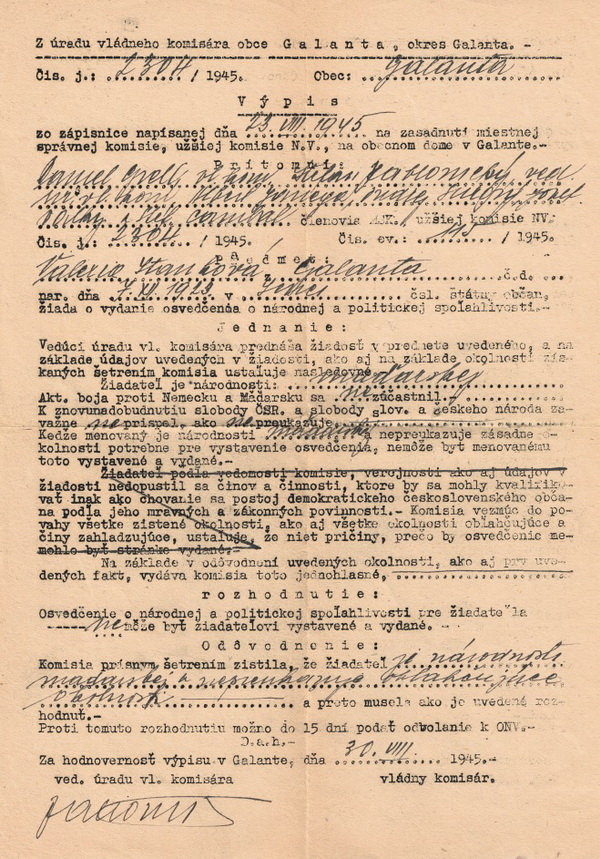 Z úradu vládneho komisára obce Galanta, okres Galanta.-
Čis. j.: 2304 / 1945. Obec: Galanta
Výpis
zo zápisnice napísanej dňa 23.VIII.1945 na zasadnutí miestnej
správnej komisie, užšiej komisie N.V., na obecnom dome v Galante.-
Prítomní:
Daniel Milan Jablonický, ved.
členovia MSK., užšiej komisie NV.
Čis. j.: 2304 / 1945. Čis. ev.: / 1945.
Predmet:
Valeria Stanková, Galanta č.d.
nar. dňa 7.XI.1923 v čsl. štátny občan,
žiada o vydanie osvedčenia o národnej a politickej spoľahlivosti.-
Jednanie:
Vedúci úradu vl. komisára prednáša žiadosť v predmete uvedeného, a na
základe údajov uvedených v žiadosti, ako aj na základe okolností zís-
kaných šetrením komisia ustaluje následovné:
Žiadateľ je národnosti: maďarskej
Akt. boja proti Nemecku a Maďarsku sa nezúčastnil.
K znovunadobudnutiu slobody ČSR. a slobody slov. a českého národa za-
važne neprispel, ako nepreukazuje.
Kedže menovaný je národnosti maďarskej a nepreukazuje zásadné o-
kolnosti potrebné pre vystavenie osvedčenia, nemôže byť menovanému
toto vystavené a vydané.-
Žiadateľ podľa vedomosti komisie, verejnosti ako aj údajov v
žiadosti nedopustil sa činov a činnosti, ktoré by sa mohly kvalifiko-
vať inak ako chovanie sa postoj demokratického československého obča-
na podľa jeho mravných a zákonných povinností.- Komisia vezmúc do po-
vahy všetke zistené okolnosti, ako aj všetke okolnosti obľahčujúce a
činy zahladzujúce, ustaluje, že niet príčiny, prečo by osvedčenie ne-
mohlo byť stránke vydané.-
Na základe v odôvodnení uvedených okolností, ako aj prv uve-
dených fakt, vydáva komisia toto jednohlasné,
rozhodnutie:
Osvedčenie o národnej a politickej spoľahlivosti pre žiadateľa
nemôže byť žiadateľovi vystavené a vydané. -
Odôvodnenie:
Komisia prísnym šetrením zistila, že žiadateľ je národnosti
maďarskej a nepreukazuje obľahčujúce
okolnosti a preto musela ako je uvedené roz-
hodnuť.-
Proti tomuto rozhodnutiu možno do 15 dní podať odvolanie k ONV.-
D.a.h.-
Za hodnovernosť výpisu v Galante, dňa 30.VIII. 1945.-
ved. úradu vl. komisára vládny komisár.